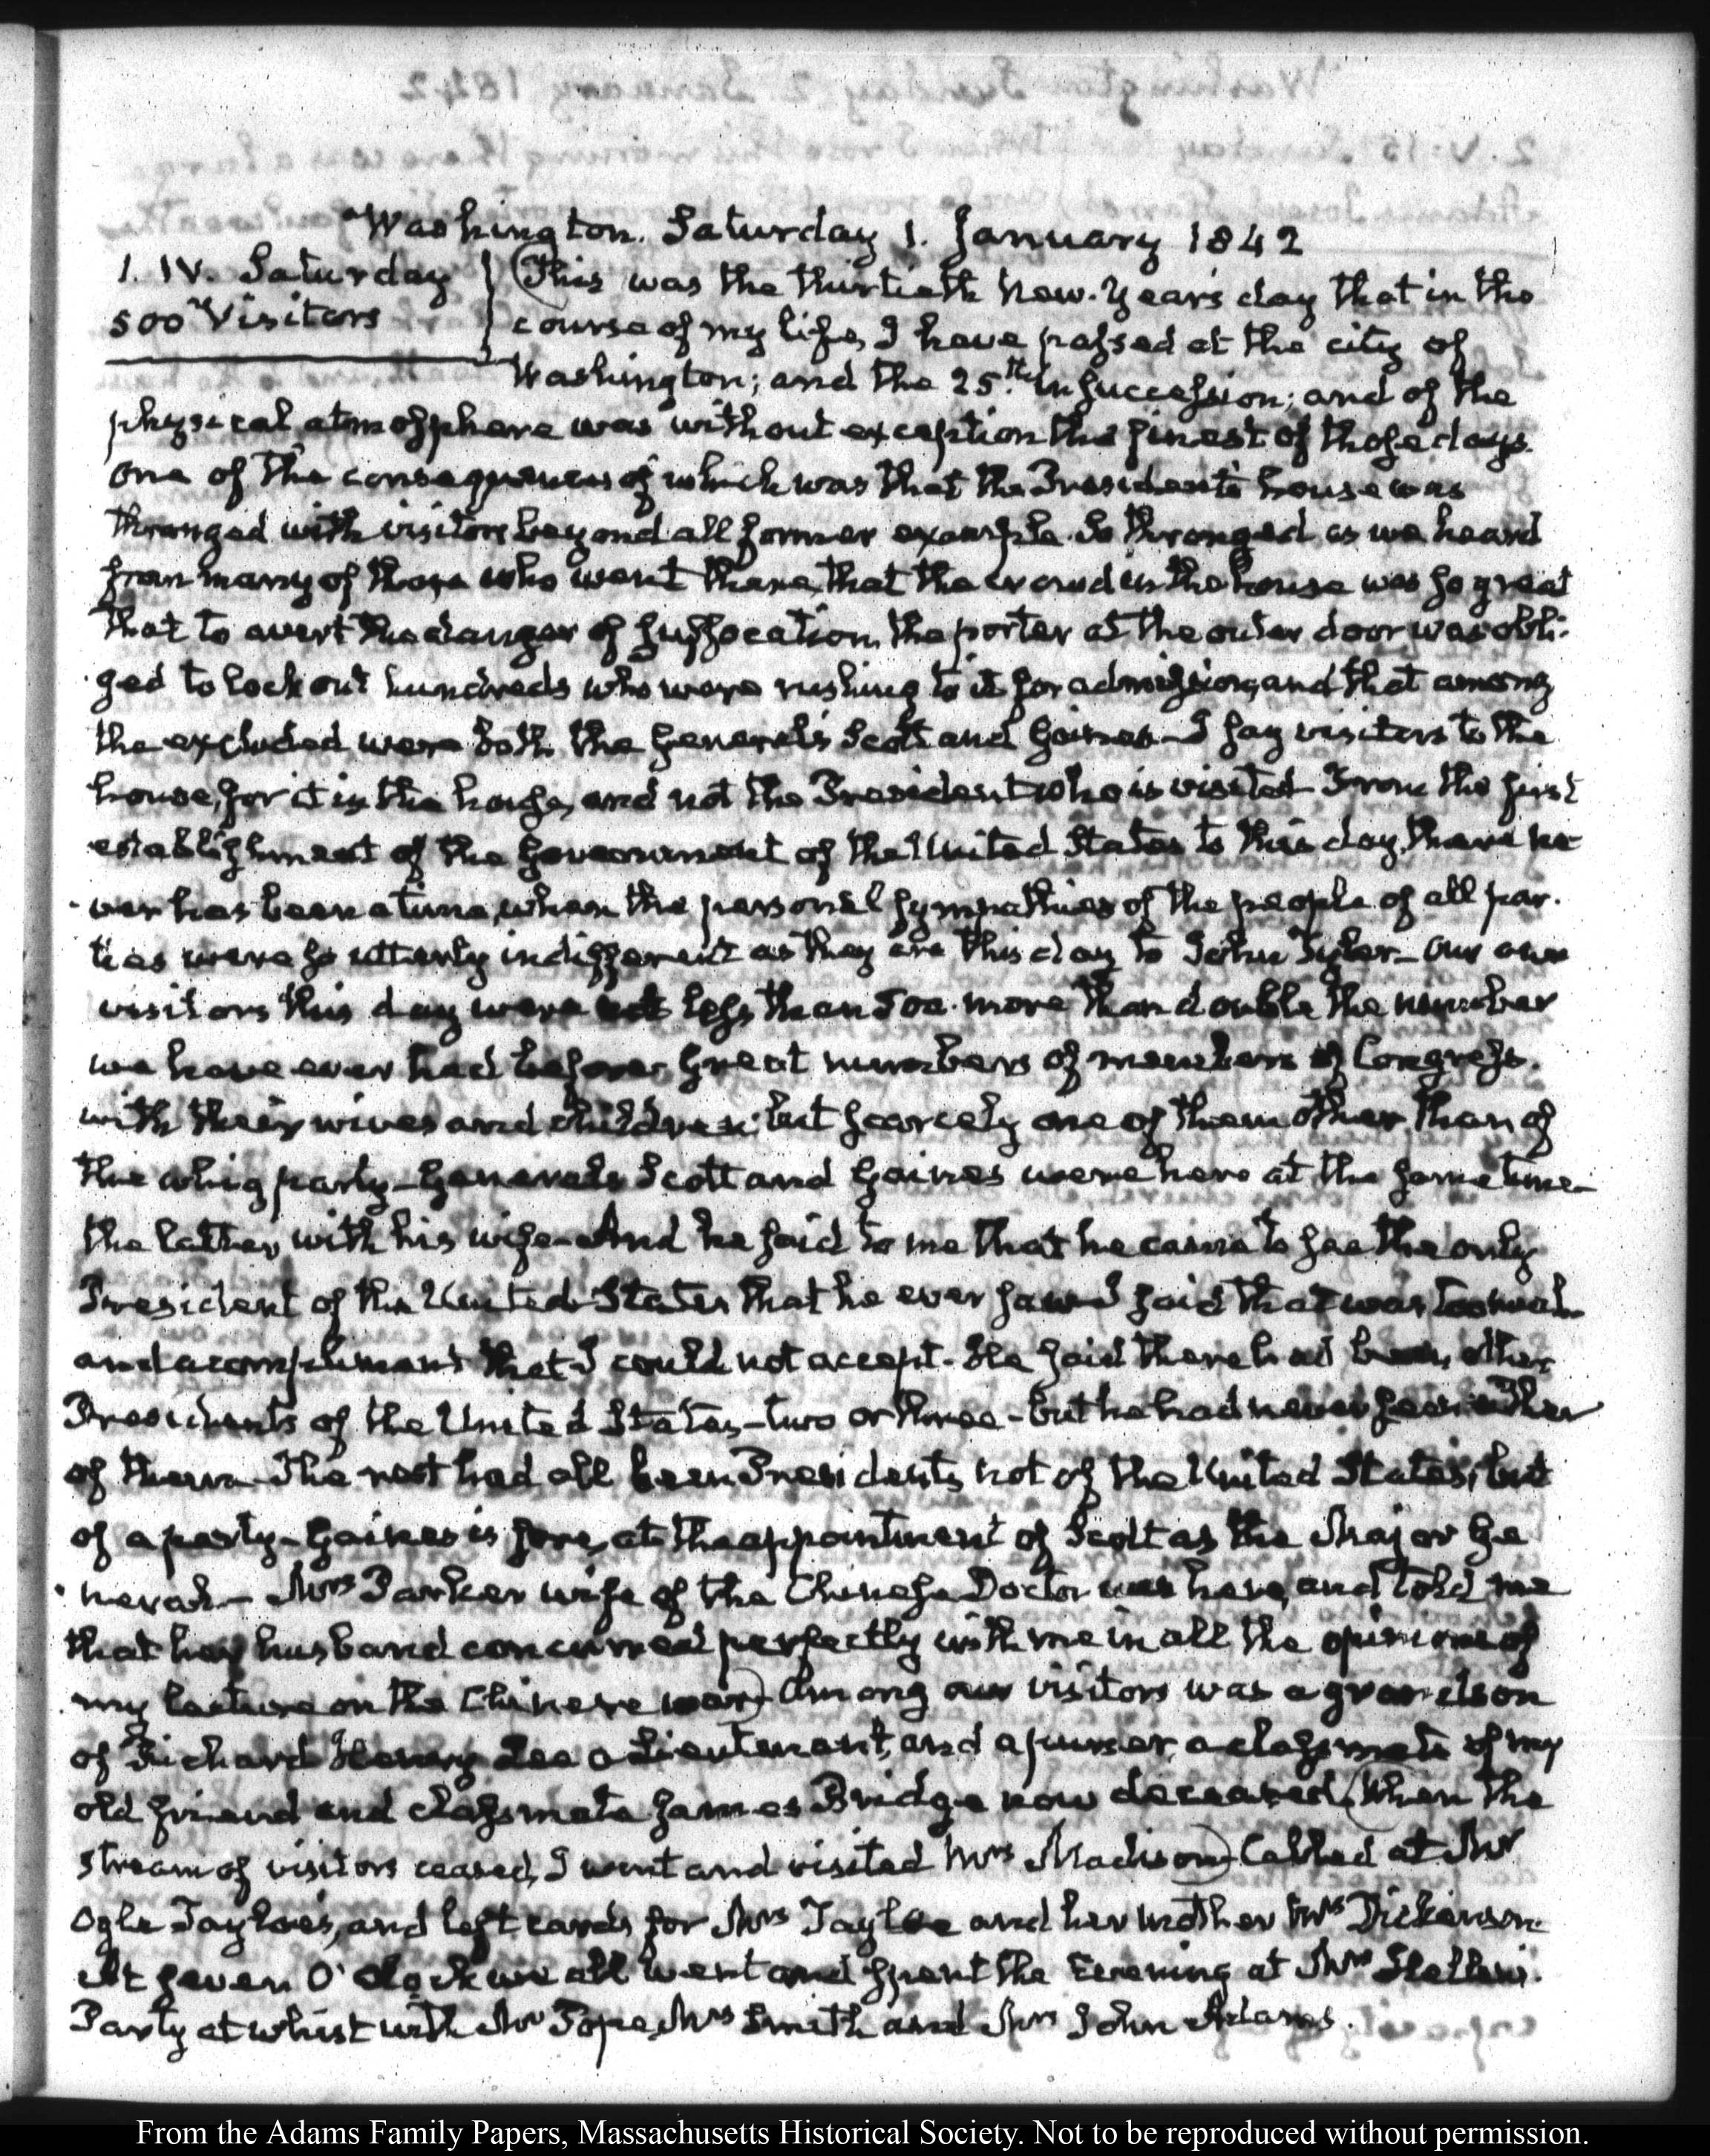 Washington. Saturday 1. January 1842
1. IV. Saturday
500 Visitors
This was the thirtieth New-Year's day that in the
course of my life, I have passed at the city of
Washington; and the 25th in succession; and of the
physical atmosphere was without exception the finest of those days.
one of the consequences of which was that the President's house was
thronged with visitors beyond all former example. So thronged, as we heard
from many of those who went there, that the crowd in the house was so great
that to avert the danger of suffocation, the porter at the outer door was obli-
ged to lock out hundreds who were rushing to it for admission, and that among
the excluded were both the Generals Scott and Gaines. I say visitors to the
house, for it is the house, and not the President who is visited. From the first
establishment of the Government of the United States to this day, there ne-
ver has been a time, when the personal sympathies of the people of all par-
ties were so utterly indifferent as they are this day to John Tyler. Our own
visitors this day were not less than 500. more than double the number
we have ever had before. Great numbers of members of Congress.
with their wives and children; but scarcely one of them other than of
the whig party. Generals Scott and Gaines were here at the same time.
the latter with his wife. And he said to me that he came to see the only
President of the United States that he ever saw. I said that was
and a compliment that I could not accept. He said there had been other
Presidents of the United States, two or three - but he had never seen either
of them. The rest had all been Presidents, not of the United States, but
of a party. Gaines is sore, at the appointment of Scott as the Major Ge-
neral. Mrs Parker wife of the Chinese Doctor was here, and told me
that her husband concurred perfectly with me in all the opinions of
my lecture on the Chinese war) Among our visitors was a grandson
of Richard Henry Lee a Lieutenant, and a purser, a classmate of my
old friend and classmate James Bridge now deceased. (When the
stream of visitors ceased, I went and visited Mrs Madison) Called at Mr
Ogle Tayloe's, and left cards for Mrs Tayloe and her mother Mrs Dickinson.
At seven O'Clock we all went and spent the Evening at Mrs
Party at whist with Mr Pope, Mrs Smith and Mrs John Adams.
From the Adams Family Papers, Massachusetts Historical Society. Not to be reproduced without permission.